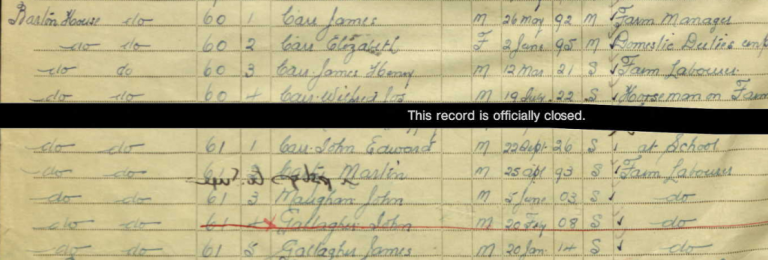 Barton House do 60 1 Carr James M 26 May 92 M Farm Manager
do do 60 2 Carr Elizabeth F 2 June 95 M Domestic Duties
do do 60 3 Carr James Henry M 12 Mar 21 S Farm Labourer
do do 60 4 Carr Wilfred M 19 July 22 S Horseman on Farm
This record is officially closed.
do do 61 1 Carr John Edward M 22 Sept 26 S at School
do do Martin M 25 Apl 93 S Farm Labourer
do do 61 3 Maughan John M 5 June 03 S do
do do 61 4 Gallagher John M 20 08 S do
do do 61 5 Gallagher James M 20 Jan 14 S do